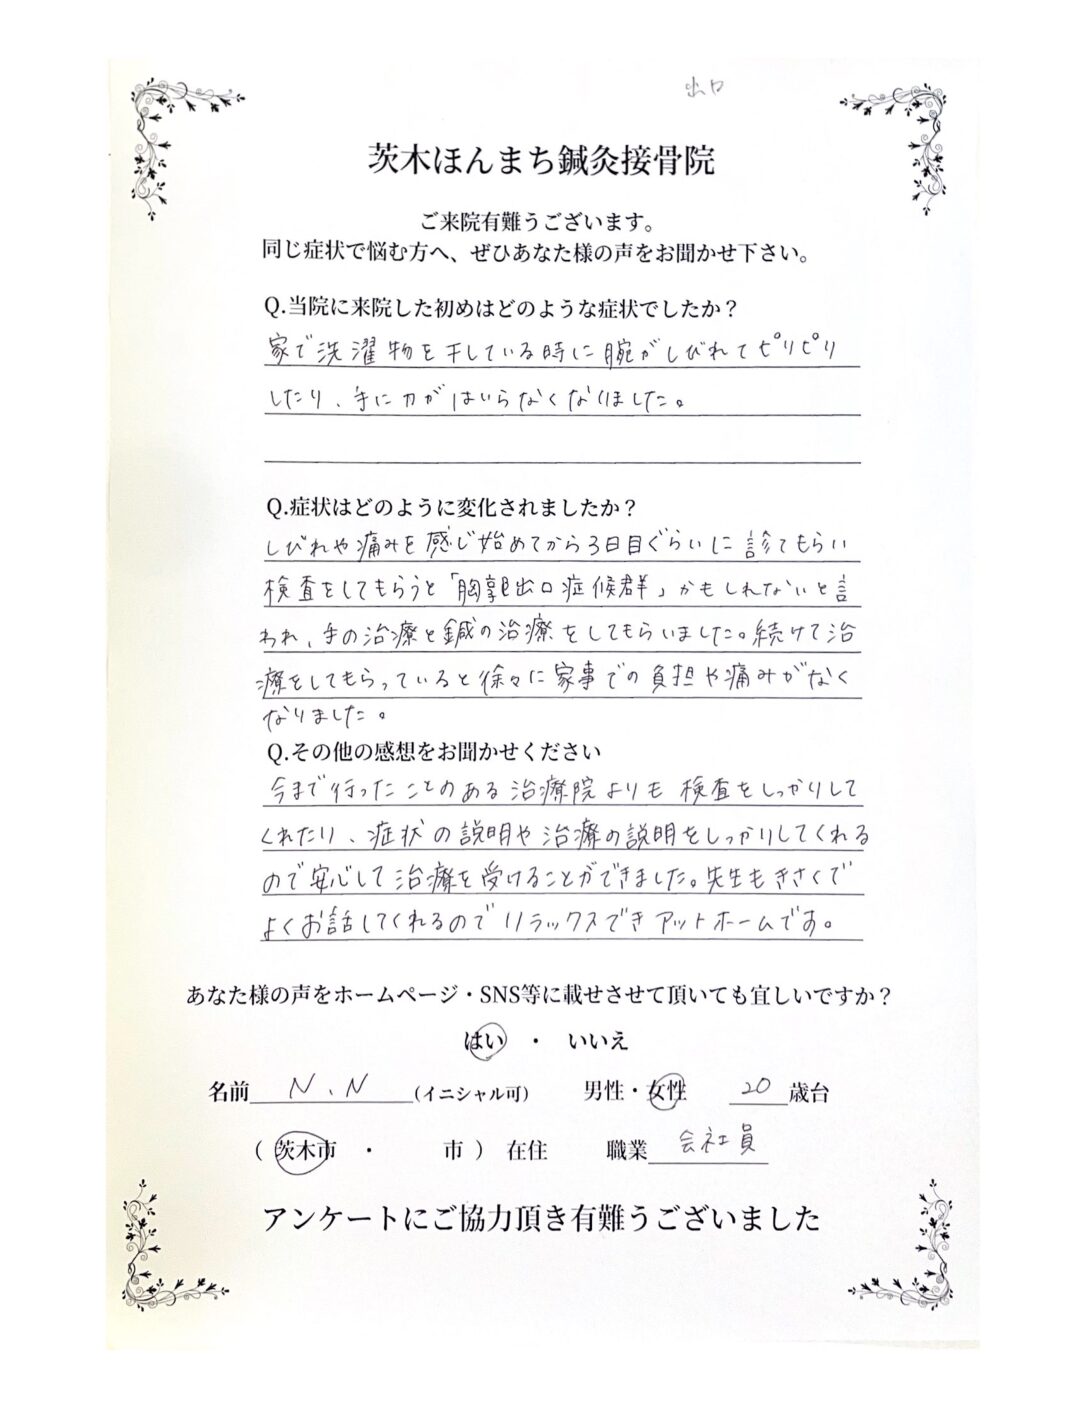 出口
茨木ほんまち鍼灸接骨院
ご来院有難うございます。
同じ症状で悩む方へ、ぜひあなた様の声をお聞かせ下さい。
Q.当院に来院した初めはどのような症状でしたか？
家で洗濯物を干している時に腕がしびれてピリピリ
したり、手に力がはいらなくなりました。
Q.症状はどのように変化されましたか？
しびれや痛みを感じ始めてから3日目ぐらいに診てもらい
検査をしてもらうと「胸郭出口症候群」かもしれないと言
われ、手の治療と鍼の治療をしてもらいました。続けて治
療をしてもらっていると徐々に家事での負担や痛みがなく
なりました。
Q.その他の感想をお聞かせください
今まで行ったことのある治療院よりも検査をしっかりして
くれたり、症状の説明や治療の説明をしっかりしてくれる
ので安心して治療を受けることができました。先生もきさくで
よくお話してくれるのでリラックスできアットホームです。
あなた様の声をホームページ・SNS等に載せさせて頂いても宜しいですか？
はい ・ いいえ
名前 N.N (イニシャル可) 男性・女性 20 歳台
( 茨木市 ・ 市 ) 在住 職業 会社員
アンケートにご協力頂き有難うございました